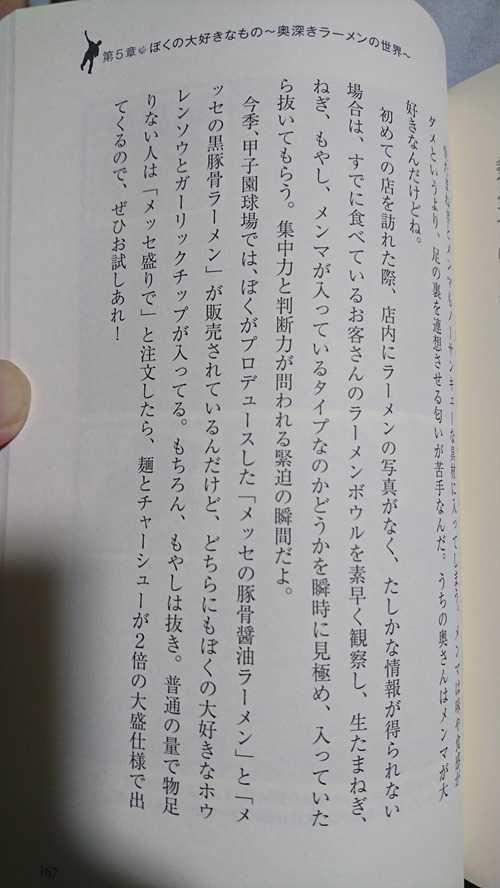 第5章 ぼくの大好きなもの～奥深きラーメンの世界～
ダメというより、足の裏を連想させる匂いが苦手なんだ。うちの奥さんはメンマが大
好きなんだけどね。
初めての店を訪れた際、店内にラーメンの写真がなく、たしかな情報が得られない
場合は、すでに食べているお客さんのラーメンボウルを素早く観察し、生たまねぎ、
ねぎ、もやし、メンマが入っているタイプなのかどうかを瞬時に見極め、入っていた
ら抜いてもらう。集中力と判断力が問われる緊迫の瞬間だよ。
今季、甲子園球場では、ぼくがプロデュースした「メッセの豚骨醤油ラーメン」と「メ
ッセの黒豚骨ラーメン」が販売されているんだけど、どちらにもぼくの大好きなホウ
レンソウとガーリックチップが入ってる。もちろん、もやしは抜き。普通の量で物足
りない人は「メッセ盛りで」と注文したら、麺とチャーシューが2倍の大盛仕様で出
てくるので、ぜひお試しあれ！
167